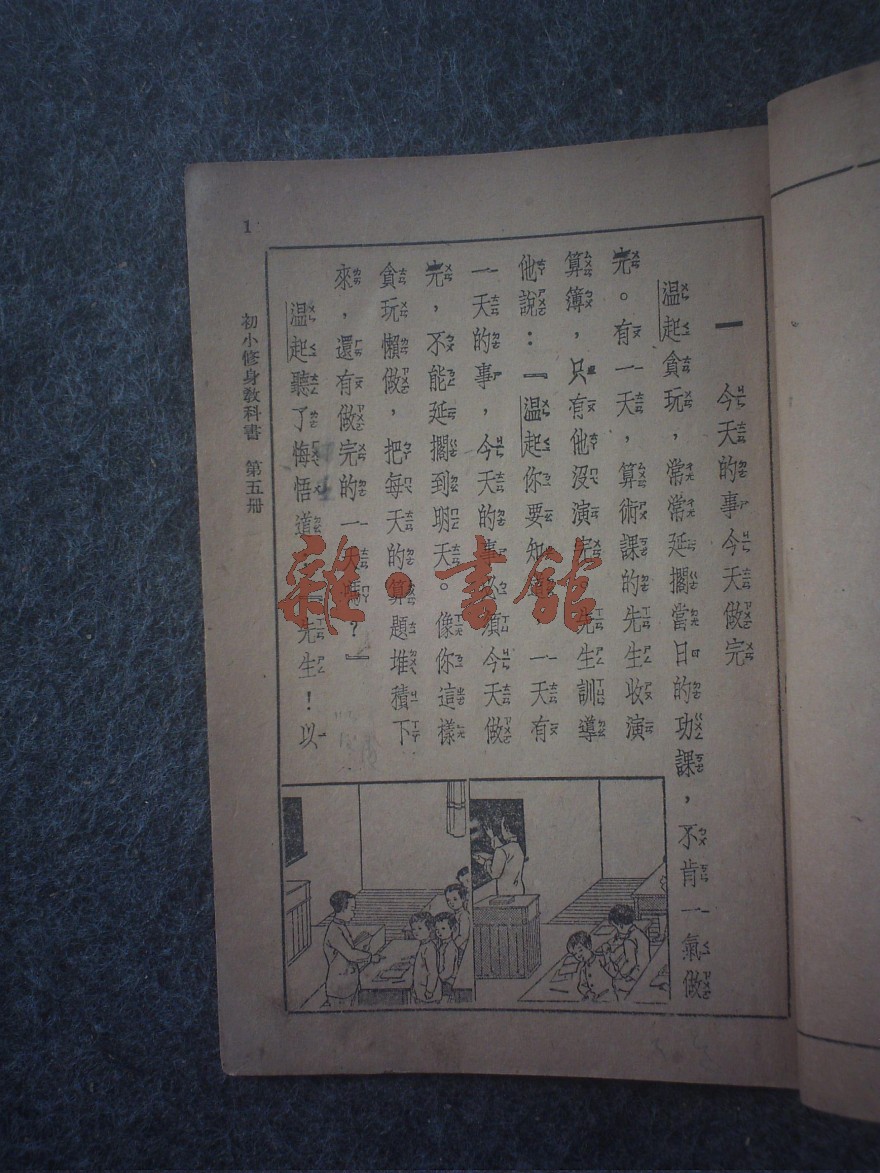 一　今天的事今天做完
温起貪玩，常常延擱當日的功課，不肯一氣做
完。有一天，算術課的先生收演
算簿，只有他沒演完先生訓導
他說：『温起你要知道一天有
一天的事，今天的事必須今天做
完，不能延擱到明天。像你這樣
貪玩懶做，把每天的算題堆積下
來，還有做完的一天嗎？』
温起聽了悔悟道『先生！以
1
初小修身教科書　第五册
雜·書館